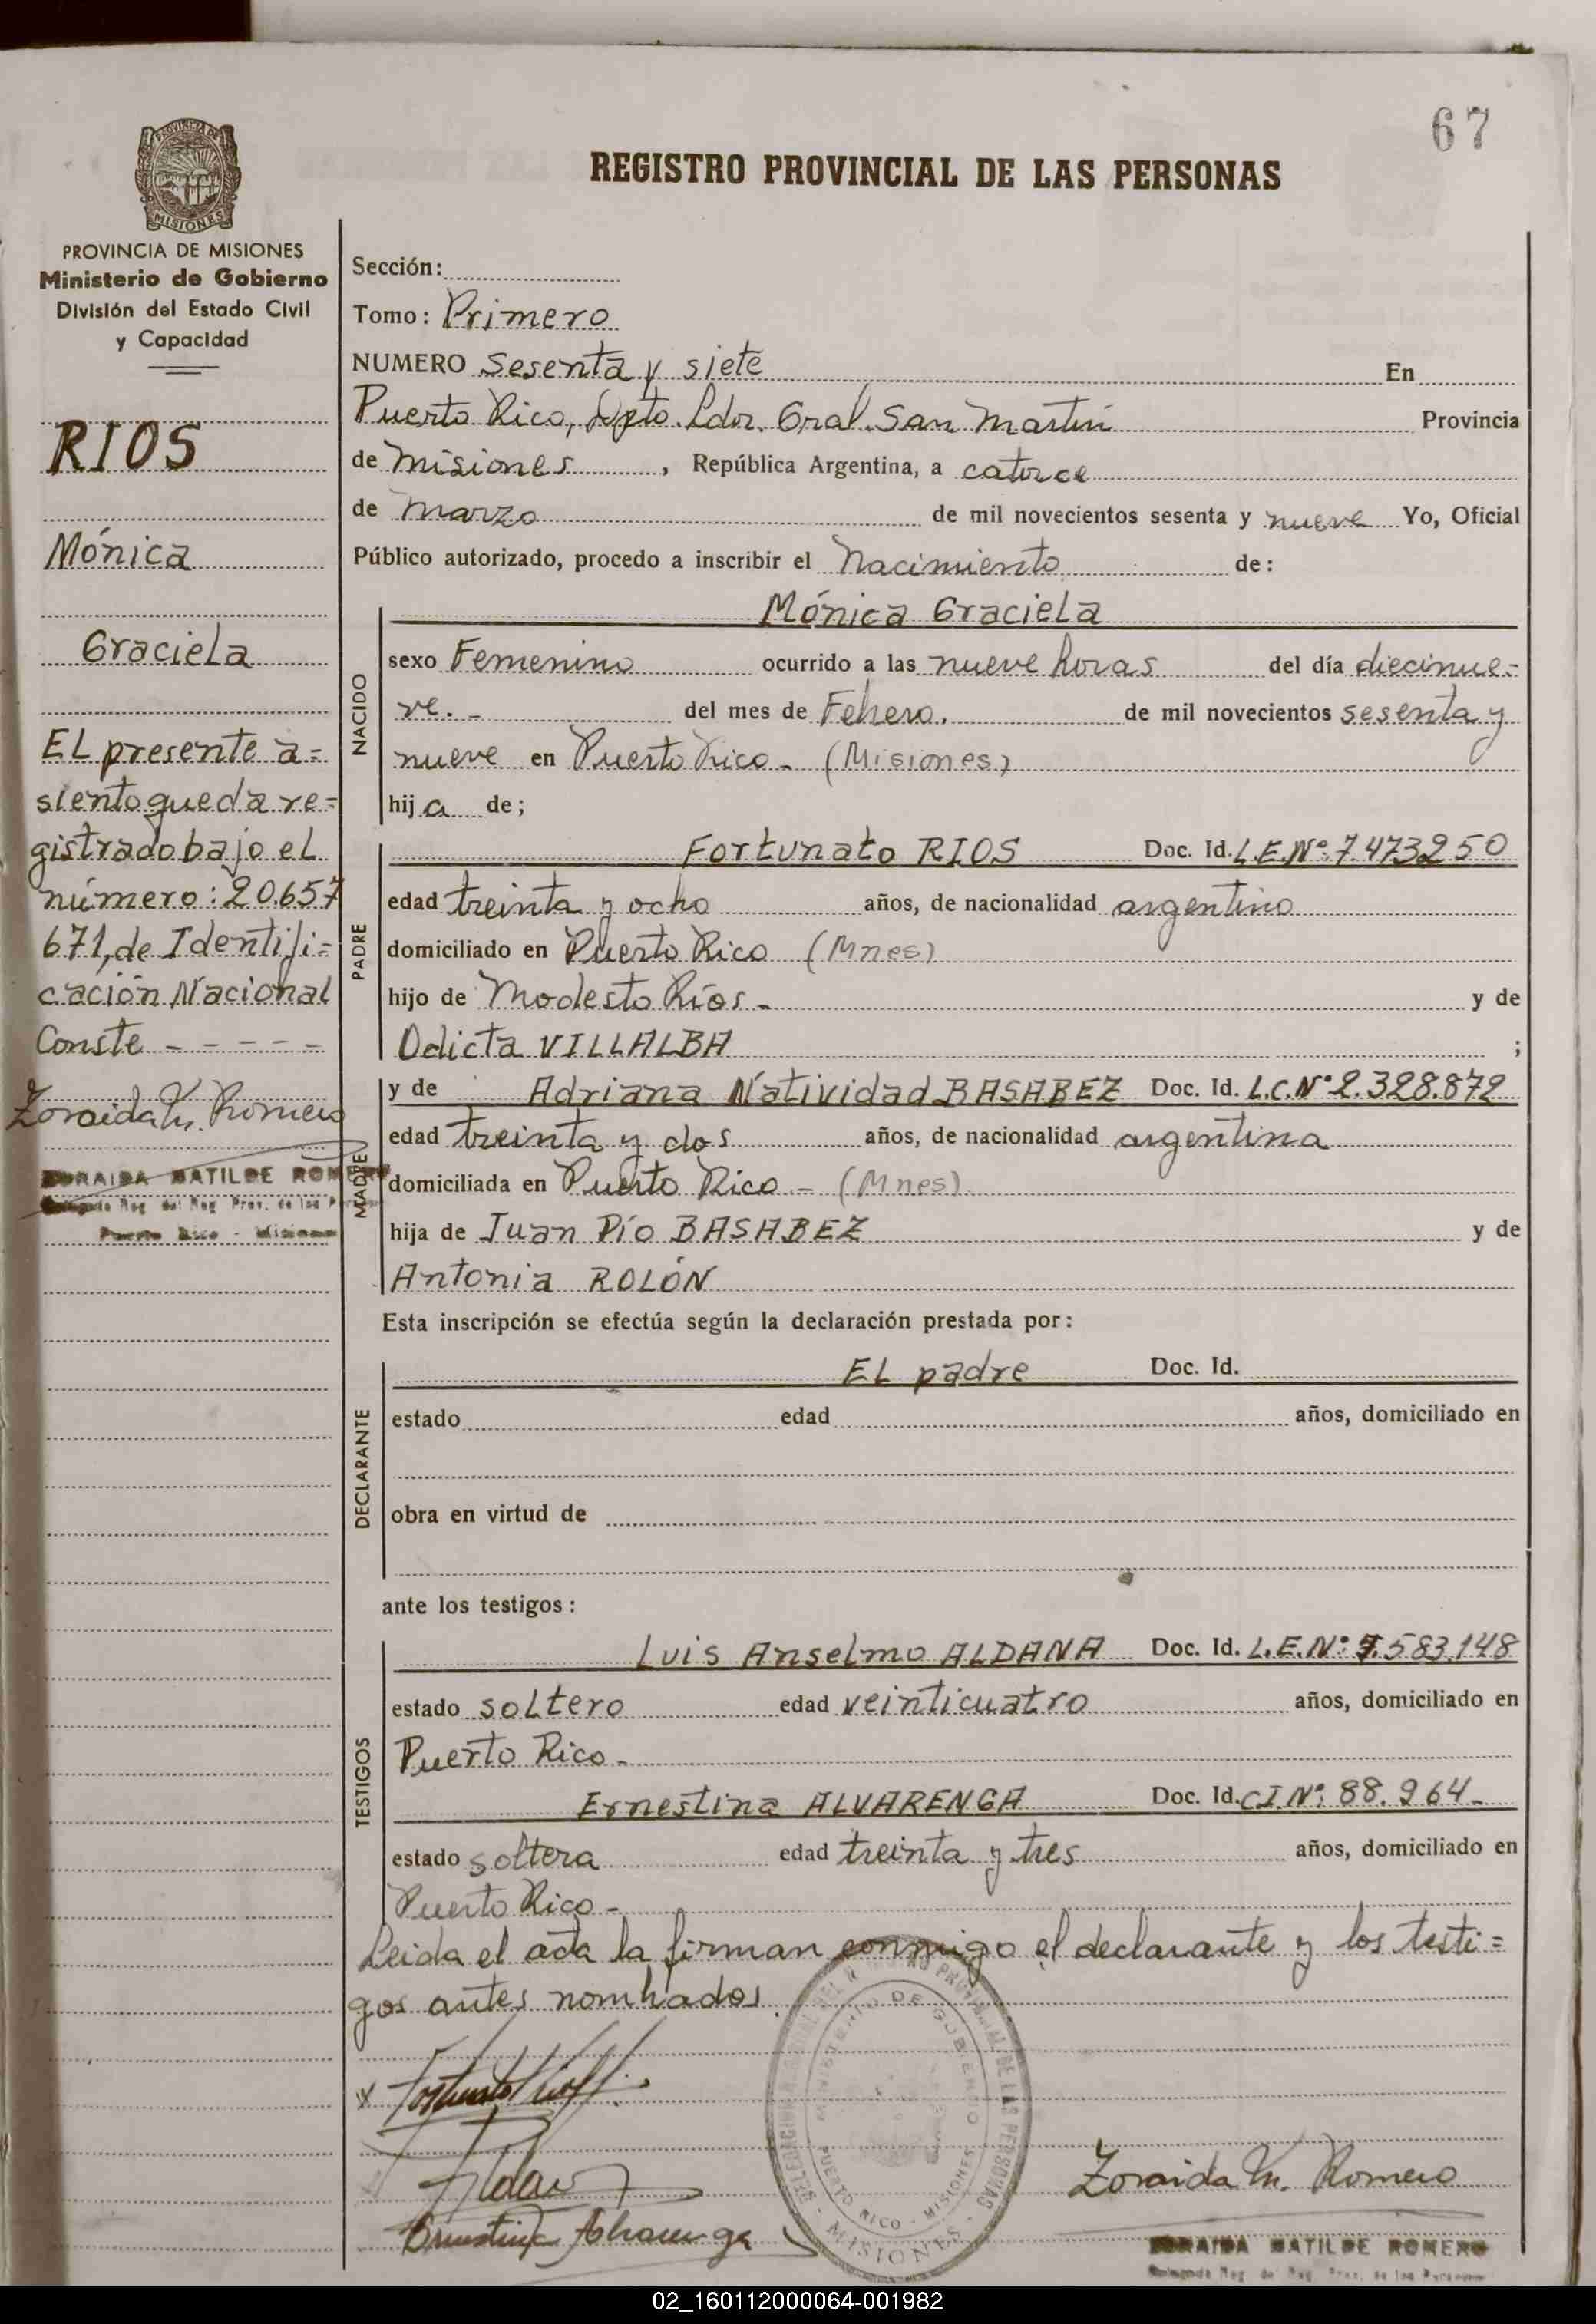 67
REGISTRO PROVINCIAL DE LAS PERSONAS
PROVINCIA DE
MISIONES
PROVINCIA DE MISIONES
Ministerio de Gobierno
División del Estado Civil
y Capacidad
RIOS
Mónica
Graciela
EL presente a=
siento queda re=
gistrado bajo el
número: 20.657
671, de Identifi=
cación Nacional
Conste - - - - -
Zoraida M. Romero
ZORAIDA MATILDE ROMERO
Puerto Rico - Misiones
Sección:
Tomo: Primero
NUMERO Sesenta y siete En
Puerto Rico, Dpto. Ldor. Gral. San Martín Provincia
de Misiones, República Argentina, a catorce
de Marzo de mil novecientos sesenta y nueve Yo, Oficial
Público autorizado, procedo a inscribir el Nacimiento de:
NACIDO
Mónica Graciela
sexo Femenino ocurrido a las nueve horas del día diecinue=
ve.- del mes de Febrero. de mil novecientos sesenta y
nueve en Puerto Rico - (Misiones)
hija de;
PADRE
Fortunato RIOS Doc. Id. L.E.Nº: 7.473250
edad treinta y ocho años, de nacionalidad argentino
domiciliado en Puerto Rico (Mnes)
hijo de Modesto Ríos - y de
Odicta VILLALBA ;
MADRE
y de Adriana Natividad BASABEZ Doc. Id. L.C.Nº 2.328.872
edad treinta y dos años, de nacionalidad argentina
domiciliada en Puerto Rico - (Mnes)
hija de Juan Pío BASABEZ y de
Antonia ROLÓN
Esta inscripción se efectúa según la declaración prestada por:
DECLARANTE
EL padre Doc. Id.
estado edad años, domiciliado en
obra en virtud de
ante los testigos:
TESTIGOS
Luis Anselmo ALDANA Doc. Id. L.E.Nº: 7.583.148
estado soltero edad veinticuatro años, domiciliado en
Puerto Rico -
Ernestina ALVARENGA Doc. Id. C.I.Nº: 88.964-
estado soltera edad treinta y tres años, domiciliado en
Puerto Rico -
Leida el acta la firman conmigo el declarante y los testi=
gos antes nombrados.
x Fortunato Rios
Ernestina Alvarenga
MINISTERIO DE GOBIERNO
PUERTO RICO - MISIONES
MISIONES
Zoraida M. Romero
ZORAIDA MATILDE ROMERO
02_160112000064-001982